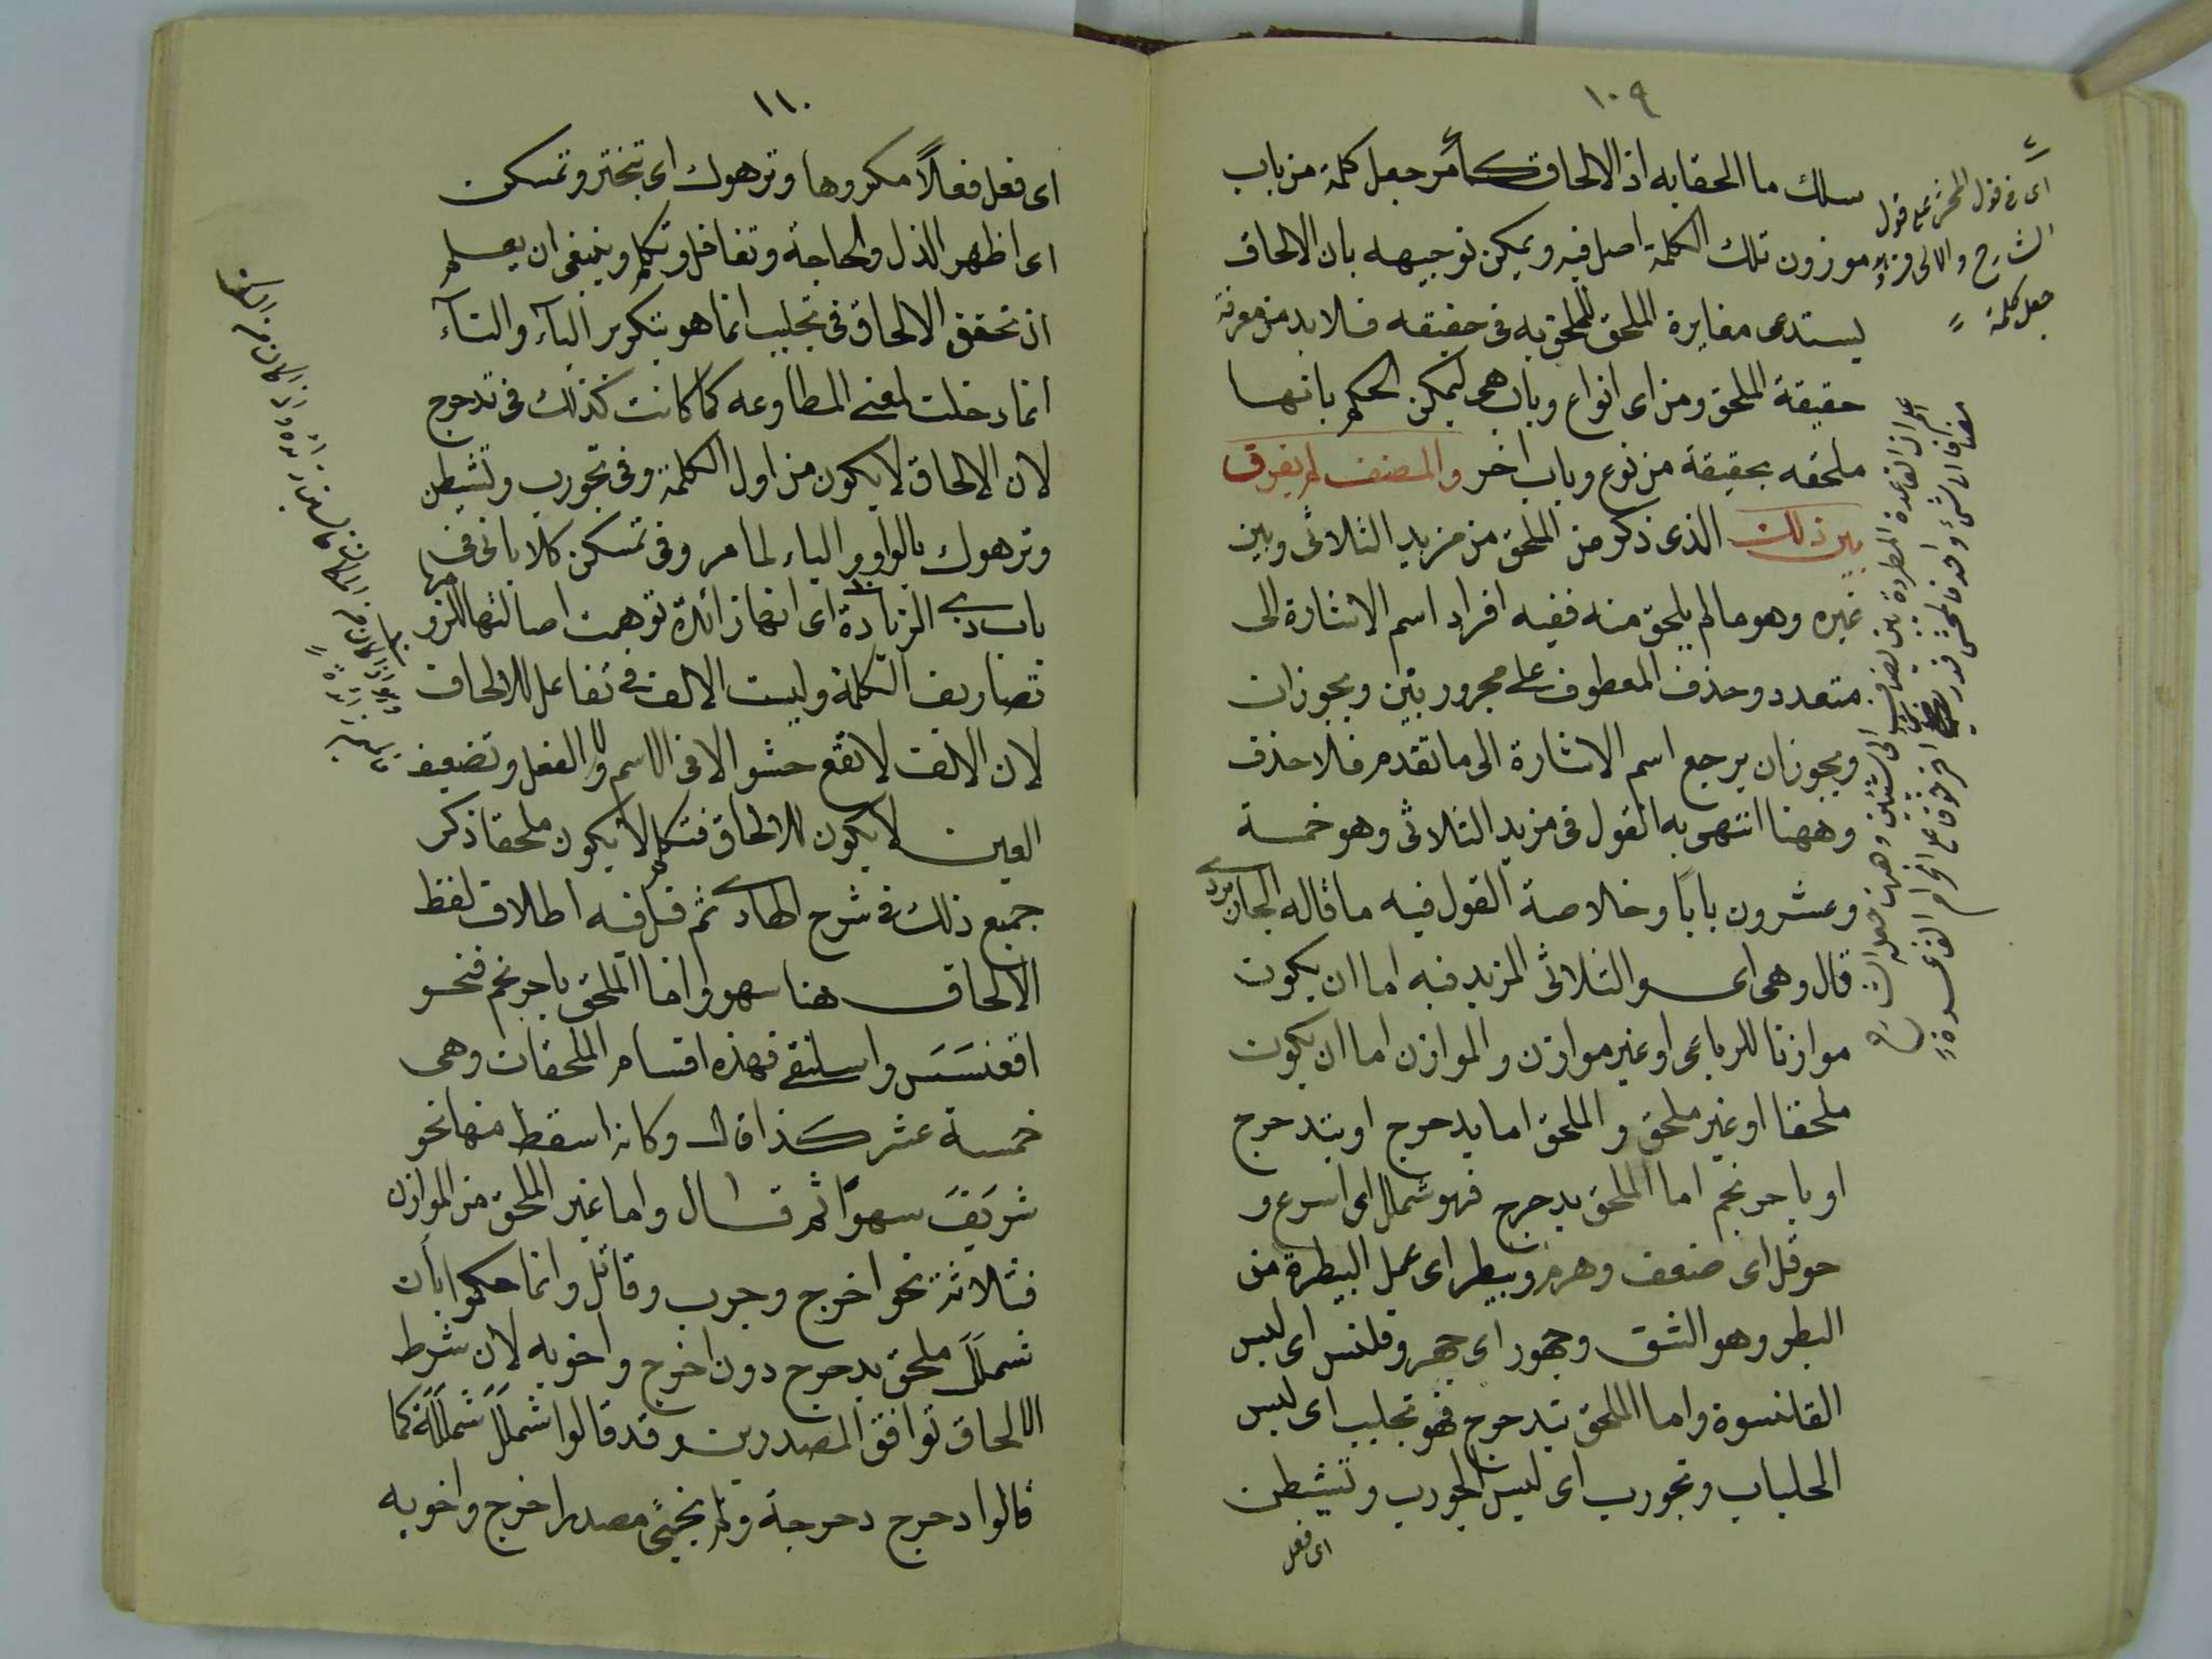 ١٠٩
سلك ما الحقا به اذ الالحاق كما مر جعل كلمة من باب
موزون تلك الكلمة اصل فيه ويمكن توجيهه بان الالحاق
يستدعى مغايرة الملحق للملحق به فى حقيقه فلا بد من معرفة
حقيقة الملحق ومن اى انواع وباب هى ليمكن الحكم بانها
ملحقه بحقيقة من نوع وباب اخر والمصنف لم يفرق
بين ذلك الذى ذكر من الملحق من مزيد الثلاثى وبين
غيره وهو ما لم يلحق منه ففيه افراد اسم الاشارة الى
متعدد وحذف المعطوف على مجرور بين ويجوز ان
ويجوز ان يرجع اسم الاشارة الى ما تقدم فلا حذف
وههنا انتهى به القول فى مزيد الثلاثى وهو خمسة
وعشرون بابا وخلاصة القول فيه ما قاله الجاربردى
قال وهى اى الثلاثى المزيد فيه اما ان يكون
موازنا للرباعى او غير موازن والموازن اما ان يكون
ملحقا او غير ملحق والملحق اما بدحرج او بتدحرج
او باحرنجم اما الملحق بدحرج فهو شملل اى اسرع و
حوقل اى ضعف وهرم وبيطر اى عمل البيطرة من
البطر وهو الشق وجهور اى جهر وقلنس اى لبس
القلنسوة واما الملحق بتدحرج فهو تجلبب اى لبس
الجلباب وتجورب اى لبس الجورب وتشيطن
اى فعل
اى فى قول المحشى على قول
الشارح والالى
جعل كلمة
اعلم ان القاعدة المطردة بين تضاف الى الشيئين وههنا
١١٠
اى فعل فعلاً مكروها وترهوك اى تبختر وتمسكن
اى اظهر الذل والحاجة وتغافل وتكلم وينبغى ان يعلم
ان تحقق الالحاق فى تجلبب انما هو بتكرير الباء والتاء
انما دخلت لمعنى المطاوعه كما كانت كذلك فى تدحرج
لان الالحاق لا يكون من اول الكلمة وفى تجورب وتشيطن
وترهوك بالواو والياء لما مر وفى تمسكن كلا باتى فى
باب ذى الزيادة اى انها زائدة توهمت اصالتها للزومها
تصاريف الكلمة وليست الالف فى تفاعل للالحاق
لان الالف لا تقع حشوا لا فى الاسم ولا الفعل وتضعيف
العين لا يكون للالحاق فتكلم لا يكون ملحقا ذكر
جميع ذلك فى شرح الهادى ثم قل فيه اطلاق لفظ
الالحاق هنا سهو واما الملحق باحرنجم فنحو
اقعنسَسَ واسلنقى فهذه اقسام الملحقات وهى
خمسة عشر كذا قال وكانه اسقط منها نحو
شريَفَ سهوًا ثم قال واما غير الملحق من الموازن
فثلاثة نحو اخرج وجرب وقاتل وانما حكموا بان
شملَلَ ملحق بدحرج دون اخرج واخويه لان شرط
الالحاق توافق المصدرين وقد قالوا شملَلَ شملَلَة كما
قالوا دحرج دحرجة ولم يجئ مصدر اخرج واخويه